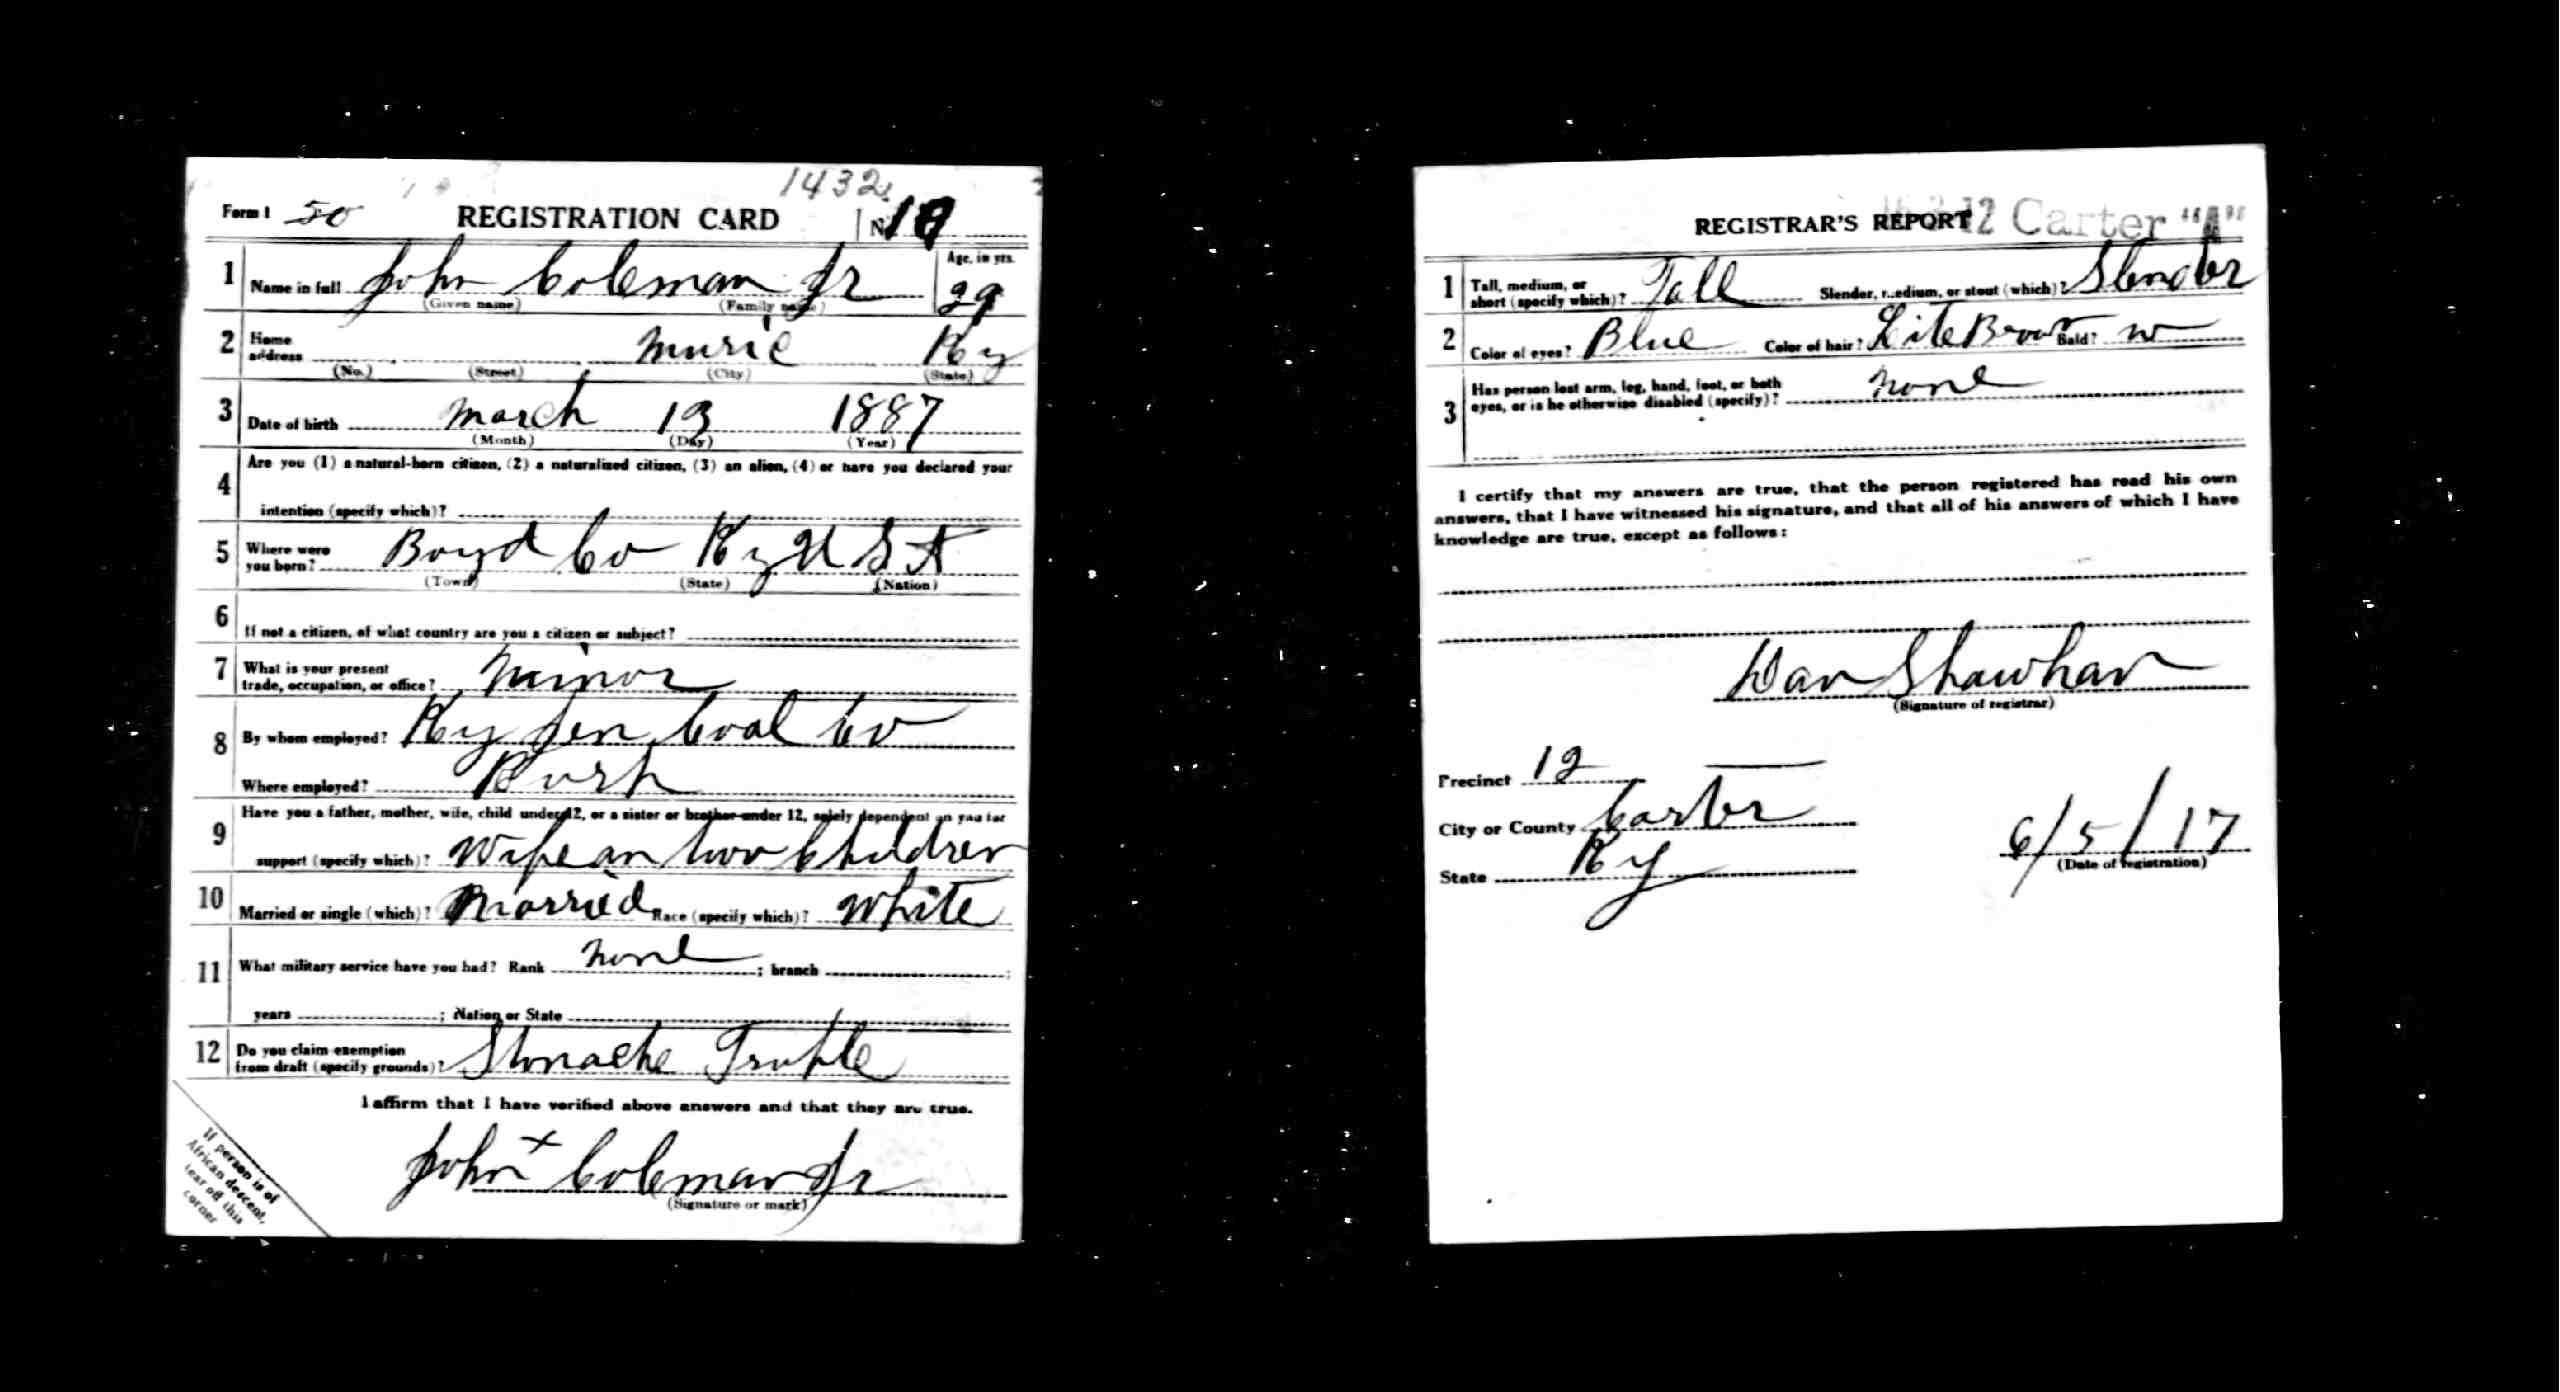 1432
Form 1 50 REGISTRATION CARD
1 Name in full John Coleman Jr Age, in yrs. 29
(Given name) (Family name)
2 Home address Muric Ky
(No.) (Street) (City) (State)
3 Date of birth March 13 1887
(Month) (Day) (Year)
4 Are you (1) a natural-born citizen, (2) a naturalized citizen, (3) an alien, (4) or have you declared your
intention (specify which)?
5 Where were you born? Boyd Co Ky U S A
(Town) (State) (Nation)
6 If not a citizen, of what country are you a citizen or subject?
7 What is your present trade, occupation, or office? Minor
8 By whom employed? Ky Jen Coal Co
Where employed? Rush
9 Have you a father, mother, wife, child under 12, or a sister or brother under 12, solely dependent on you for
support (specify which)? Wife an two Children
10 Married or single (which)? Married Race (specify which)? White
11 What military service have you had? Rank none ; branch ;
years ; Nation or State
12 Do you claim exemption from draft (specify grounds)? Stmache Truble
I affirm that I have verified above answers and that they are true.
John x Coleman Jr
(Signature or mark)
If person is of
African descent,
tear off this
corner
REGISTRAR'S REPORT Carter "A"
1 Tall, medium, or short (specify which)? Tall Slender, medium, or stout (which)? Slender
2 Color of eyes? Blue Color of hair? Lite Brown Bald? no
3 Has person lost arm, leg, hand, foot, or both
eyes, or is he otherwise disabled (specify)? none
I certify that my answers are true, that the person registered has read his own
answers, that I have witnessed his signature, and that all of his answers of which I have
knowledge are true, except as follows:
Dan Shawhan
(Signature of registrar)
Precinct 12
City or County Carter
State Ky
6/5/17
(Date of registration)